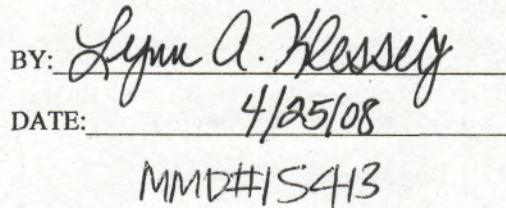 BY: Lynn A. Klessig
DATE: 4/25/08
MMD#15413